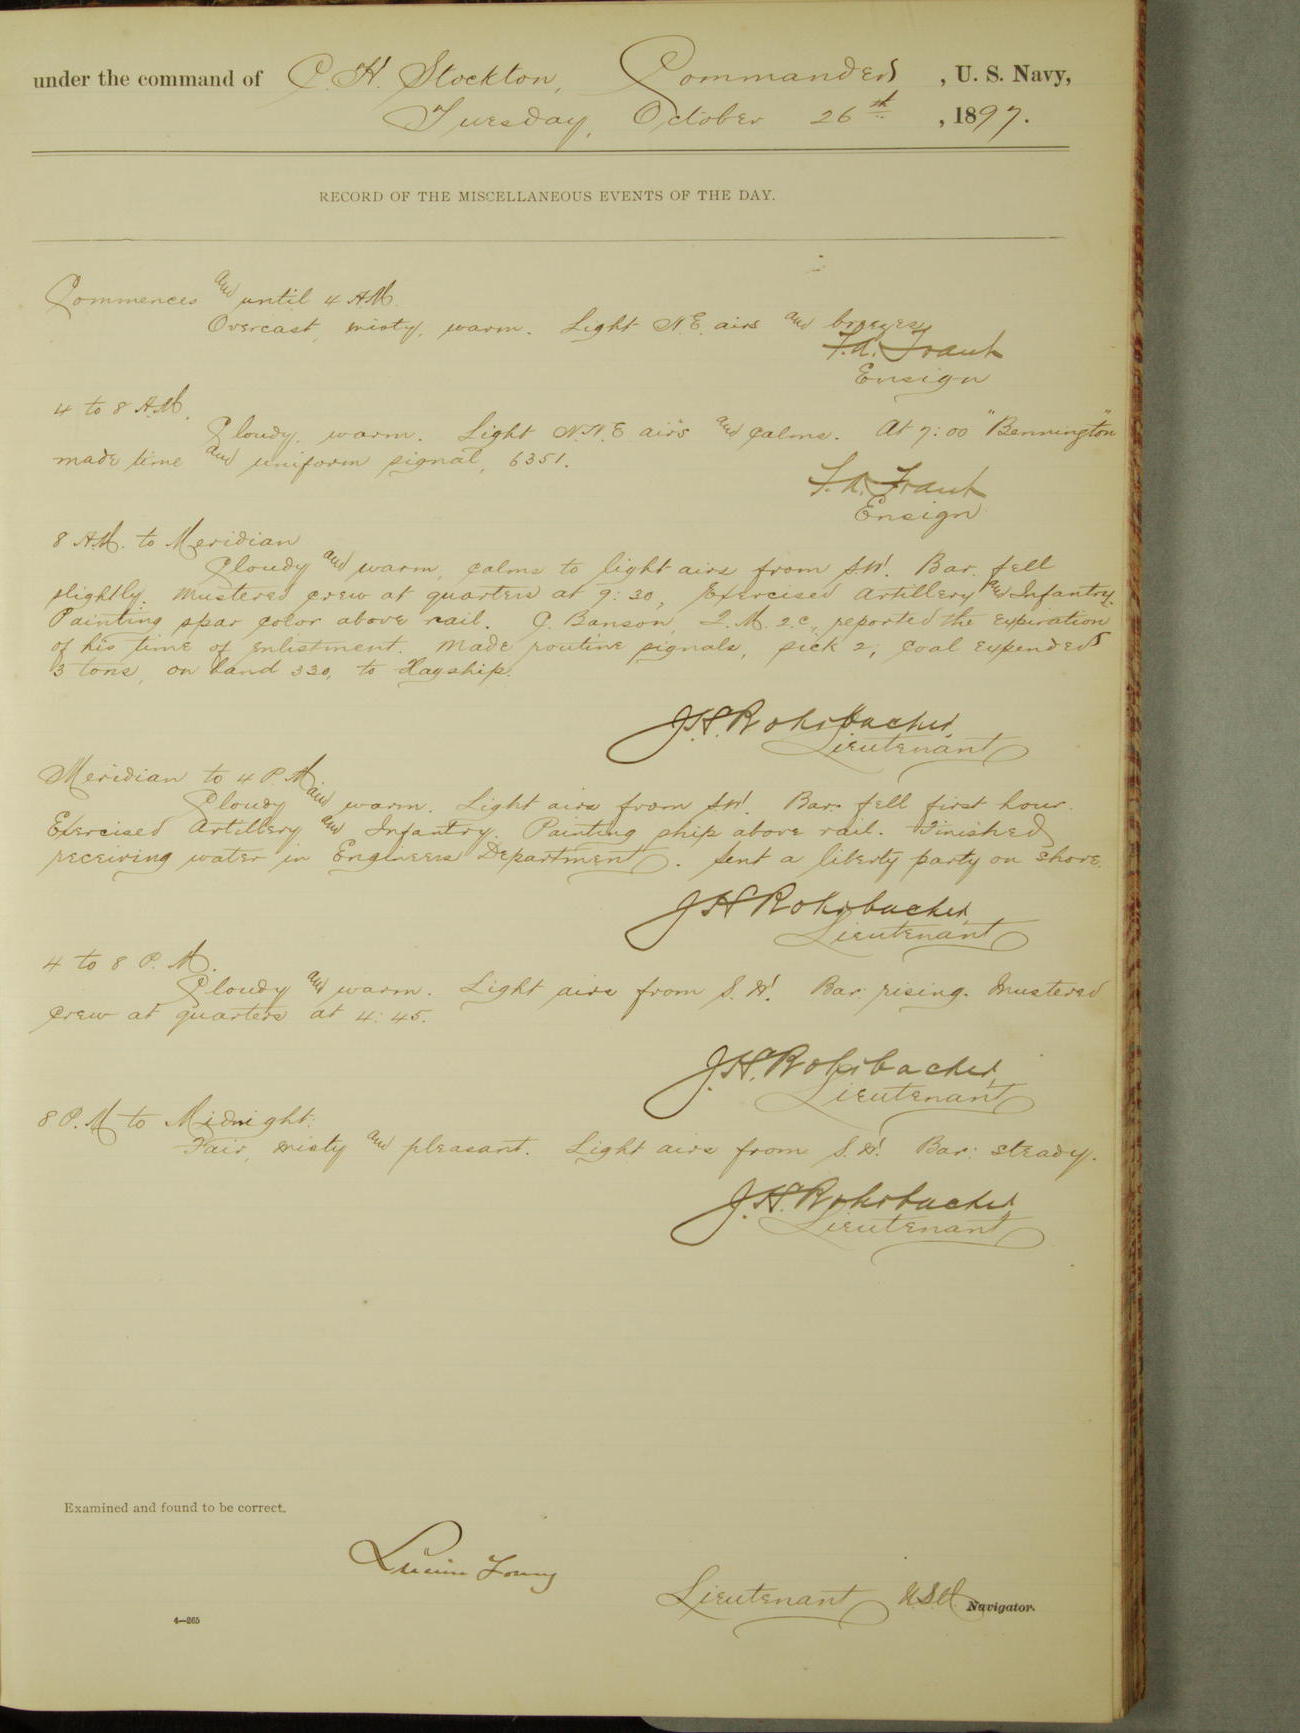 under the command of C. H. Stockton, Commander, U. S. Navy,
Tuesday, October 26th, 1897.
RECORD OF THE MISCELLANEOUS EVENTS OF THE DAY.
Commences and until 4 AM
Overcast, misty, warm. Light N.E. airs and breezes,
Ensign
4 to 8 A.M.
Cloudy, warm. Light N.N.E airs and calms. At 7:00 "Bennington"
made time and uniform signal, 6351.
Ensign
8 A.M. to Meridian
Cloudy and warm, calms to light airs from SW. Bar. fell
slightly. Mustered crew at quarters at 9:30, Exercised Artillery and Infantry.
Painting spar color above rail. C. Banson, Q.M. 2.c., reported the expiration
of his time of enlistment. Made routine signals, sick 2, coal expended
3 tons, on hand 330, to flagship.
J.H. Rohrbacher,
Lieutenant
Meridian to 4 P.M.
Cloudy and warm. Light airs from SW. Bar. fell first hour.
Exercised Artillery and Infantry. Painting ship above rail. Finished
receiving water in Engineers Department. Sent a liberty party on shore.
J H Rohrbacher,
Lieutenant
4 to 8 P. M.
Cloudy and warm. Light airs from S. W. Bar. rising. Mustered
crew at quarters at 4:45.
J.H. Rohrbacher,
Lieutenant
8 P.M to Midnight:
Fair, misty and pleasant. Light airs from S. W. Bar: steady.
J.H. Rohrbacher,
Lieutenant
Examined and found to be correct.
Lucien Young
Lieutenant U.S.N. Navigator.
4—265